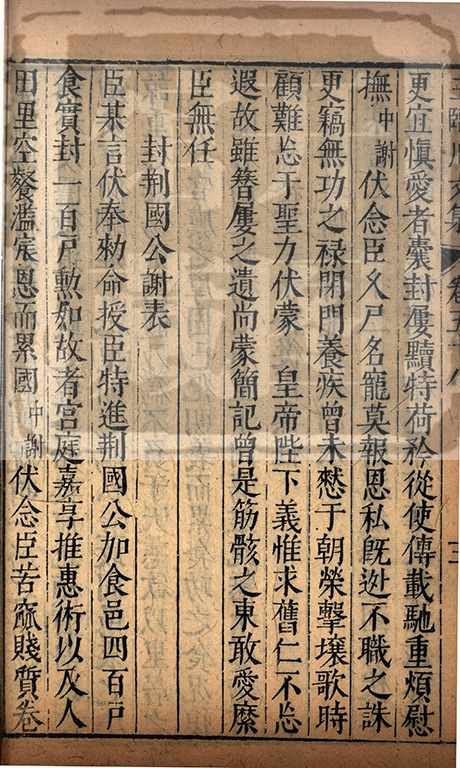 王臨川文集 卷五十八 三
更宜慎愛者囊封屢黷特荷矜從使傳載馳重煩慰
撫中謝伏念臣久尸名寵莫報恩私旣逃不職之誅
更竊無功之祿閉門養疾曾未愸于朝榮擊壤歌時
顧難忘于聖力伏蒙皇帝陛下義惟求舊仁不忘
遐故雖簪屨之遺尚蒙簡記曾是筋骸之束敢愛縻
臣無任
封荆國公謝表
臣某言伏奉勑命授臣特進荆國公加食邑四百戸
食實封一百戸勲如故者宮庭嘉享推惠術以及人
田里空餐濫宸恩而累國中謝伏念臣苦窳賤質卷